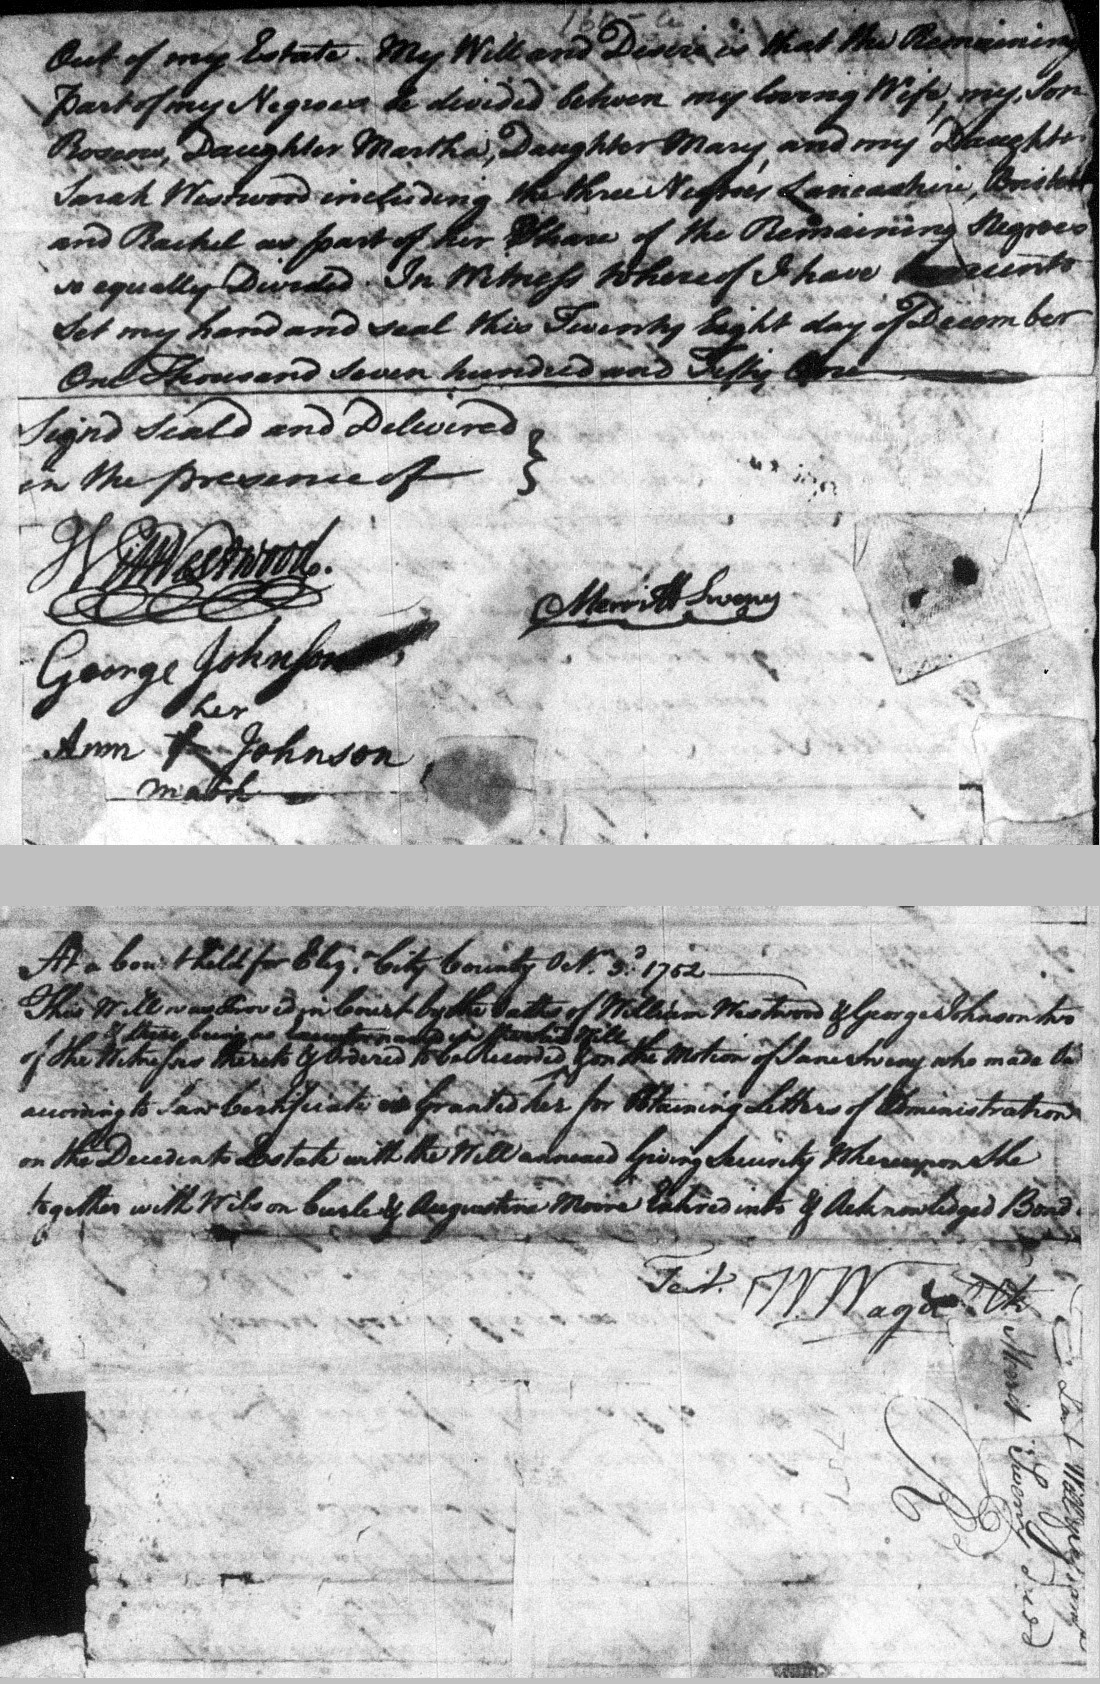 Out of my Estate. My Will and Desire is that the Remaining
Part of my Negroes be divided betwen my loving Wife, my Son
Roscow, Daughter Martha, Daughter Mary, and my Daughter
Sarah Westwood including the three Negroes Lancashire, Bristol
and Rachel as part of her Share of the Remaining Negroes
so equally Divided. In Witness Whereof I have hereunto
Set my hand and seal this Twenty Eight day of December
One Thousand Seven hundred and Fifty One
Signd Seald and Delivered
in the presence of
Will Westwood.
Merritt Sweny
George Johnson
her
Ann Johnson
mark
At a Court held for Eliz. City County Oct. 3d 1752
This Will was Proved in Court by the Oaths of William Westwood & George Johnson two
& there being no Executor named in the said Will
of the Witnesses thereto & Ordered to be Recorded & on the Motion of Jane Sweny who made
according to Law Certificate is Granted her for Obtaining Letters of Administration
on the Decedents Estate with the Will annexed Giving Security Whereupon She
together with Wilson Curle & Augustine Moore Entred into & Acknowledged Bond.
Test. W. Wager Clk
Merit Sweny